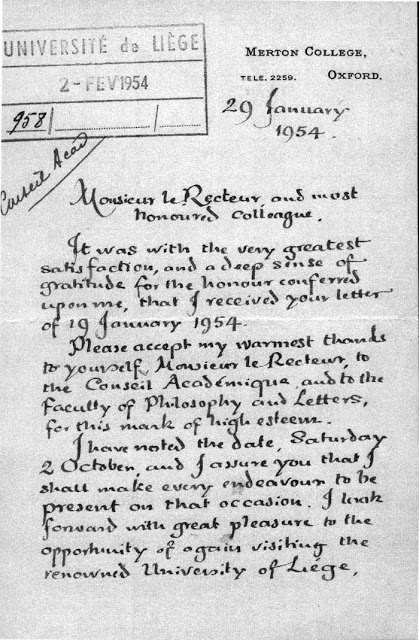 UNIVERSITÉ de LIÈGE
2-FEV 1954
958
Conseil Acad
MERTON COLLEGE,
TELE. 2259. OXFORD.
29 January
1954.
Monsieur le Recteur, and most
honoured Colleague,
It was with the very greatest
satisfaction, and a deep sense of
gratitude for the honour conferred
upon me, that I received your letter
of 19 January 1954.
Please accept my warmest thanks
to yourself, Monsieur le Recteur, to
the Conseil Académique, and to the
Faculty of Philosophy and Letters,
for this mark of high esteem.
I have noted the date, Saturday
2 October, and I assure you that I
shall make every endeavour to be
present on that occasion. I look
forward with great pleasure to the
opportunity of again visiting the
renowned University of Liége,